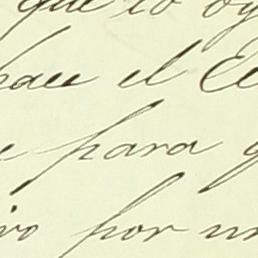 que lo oy
hace el Ce
para q
por un